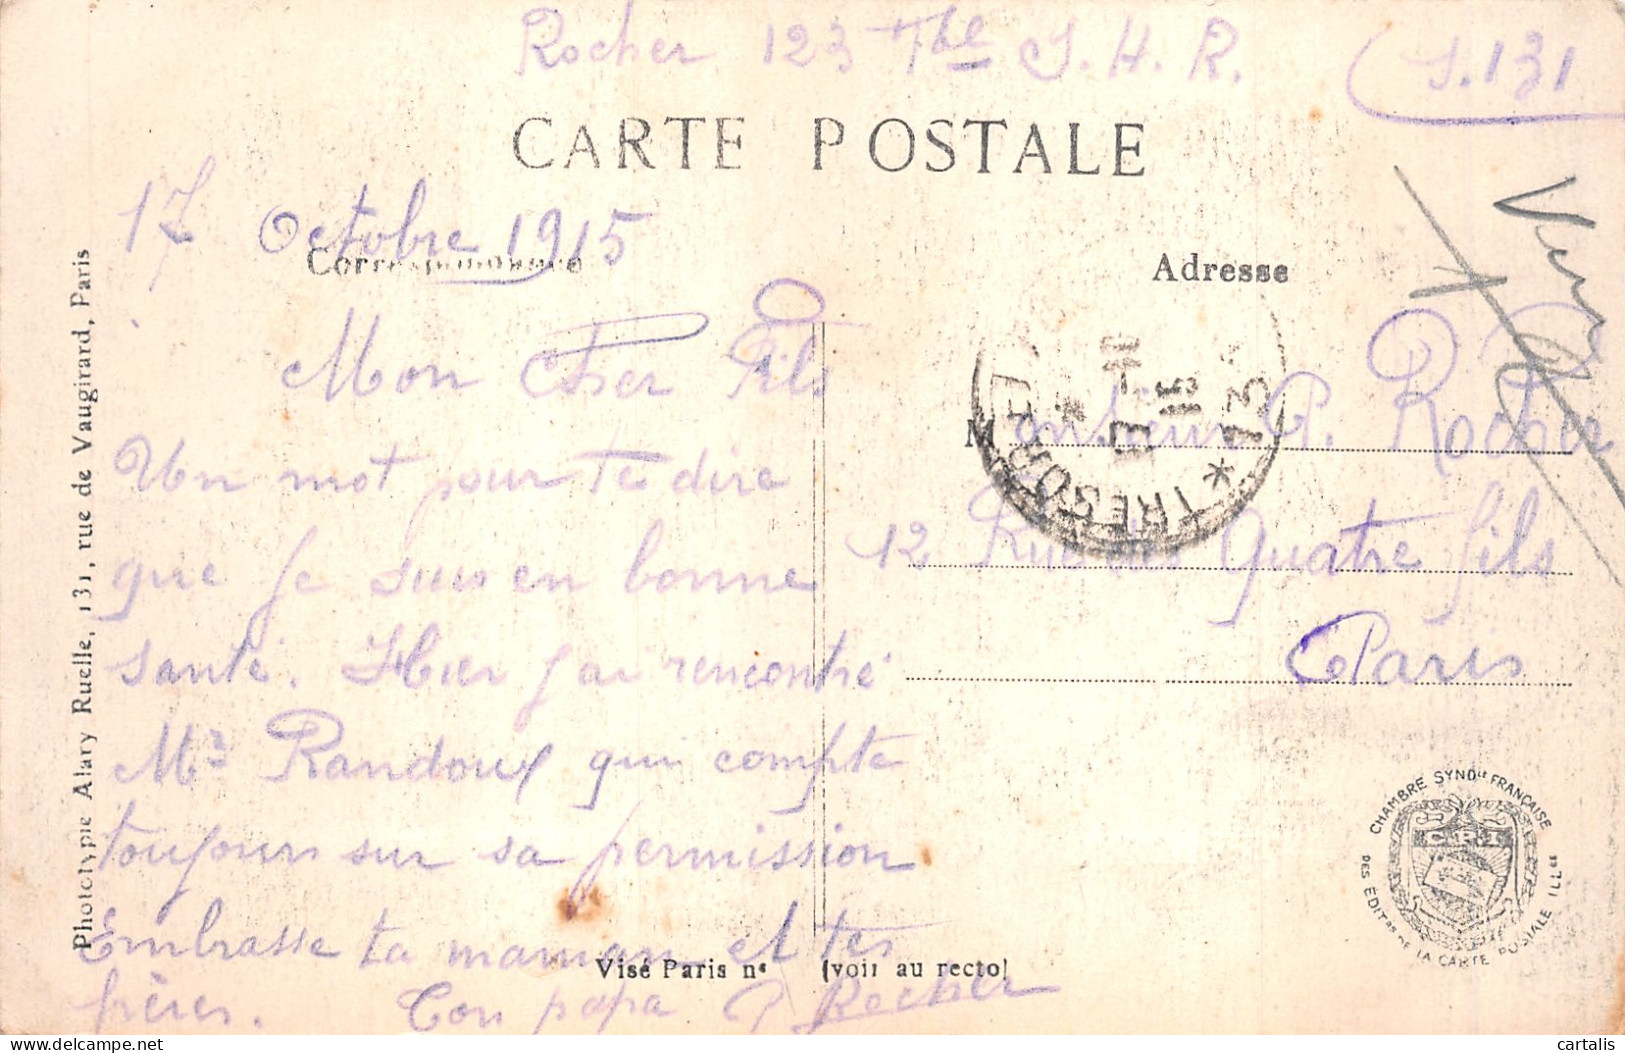 Rocher 123 Tle S. H. R. (S. 131
CARTE POSTALE
17 Octobre 1915
Correspondance
Adresse
Mon Cher Fils
Un mot pour te dire
que je suis en bonne
santé. Hier j'ai rencontré
Mr Randoux qui compte
toujours sur sa permission
Embrasse ta maman et tes
frères. Ton papa P Rocher
Monsieur P. Rocher
12 Rue des Quatre fils
Paris
TRESOR ET
*
17-10
15
*
Phototypie Alary Ruelle, 131, rue de Vaugirard, Paris
Visé Paris n° (voir au recto)
CHAMBRE SYNDle FRANÇAISE
DES ÉDITrs DE LA CARTE POSTALE ILLée
cartalis
delcampe.net